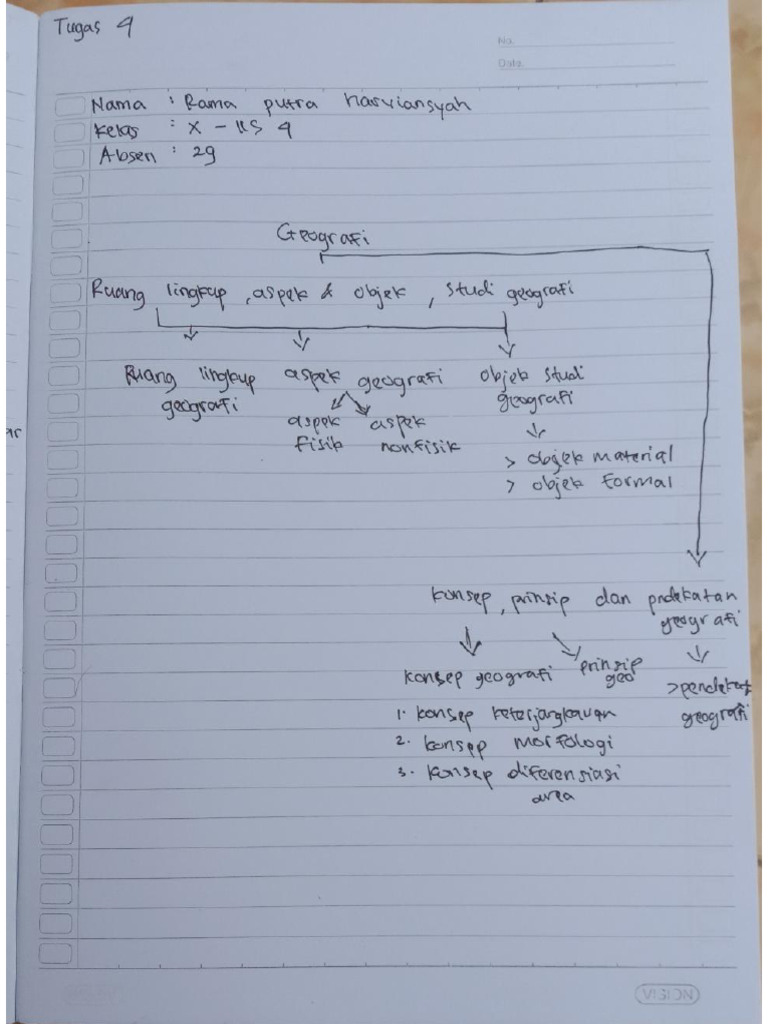 Tugas 4
No.
Date.
Nama : Rama putra
Kelas : X - IIS 4
Absen : 29
Geografi
Ruang lingkup, aspek & objek, studi geografi
Ruang lingkup aspek geografi objek studi
geografi geografi
aspek aspek
fisik nonfisik
> objek material
> objek formal
konsep, prinsip dan pndekatan
geografi
konsep geografi prinsip
geo
>pendekat
geografi
1. konsep keterjangkauan
2. konsep morfologi
3. konsep diferensiasi
area
VISION